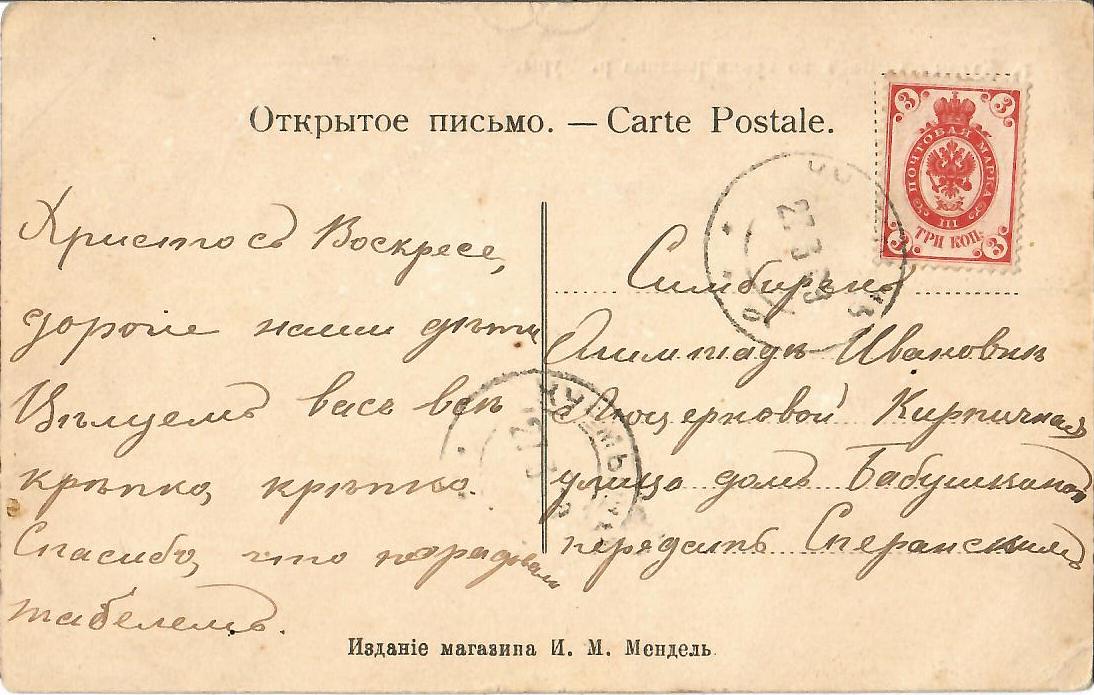 Открытое письмо. — Carte Postale.
3 3
ПОЧТОВАЯ МАРКА
III
ТРИ КОП.
3 3
27 3
КУРМЫШ
Христосъ Воскресе,
дорогіе наши дѣти
Цѣлуемъ васъ всѣхъ
крѣпко, крѣпко.
Спасибо, что порадовали
табелемъ.
Симбирскъ
Олимпіадѣ Ивановнѣ
Кирпичная
улица домъ Бабушкиной
передать Сперанскимъ
Изданіе магазина И. М. Мендель